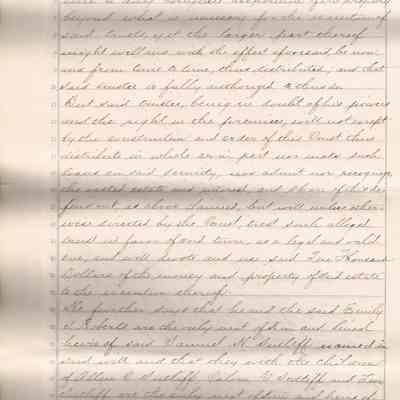 beyond what is necessary for the execution of
said trusts, yet the larger part thereof
might well and with the effect aforesaid be now
and from time to time, thus distributed, and that
said trustee is fully authorized to thus do
But said trustee, being in doubt of his powers
and the right in the premises, will not except
by the construction and order of this Court thus
distribute in whole or in part nor make such
loans on said security, nor admit nor recognize
the vested estate and interest and share of this de-
fendant as above claimed, but will unless other-
wise directed by the Court, treat such alleged
trust in favor of said town, as a legal and valid
one, and will devote and use said Ten Thousand
Dollars of the money and property of said estate
to the execution thereof.
He further says that he and the said Emily
S. Roberts are the only next of kin and lineal
heirs of said Samuel N. Sutliff named in
said will and that they with the children
of Allen C Sutliff, Calvin G Sutliff and
Sutliff are the only next of kin and heirs of